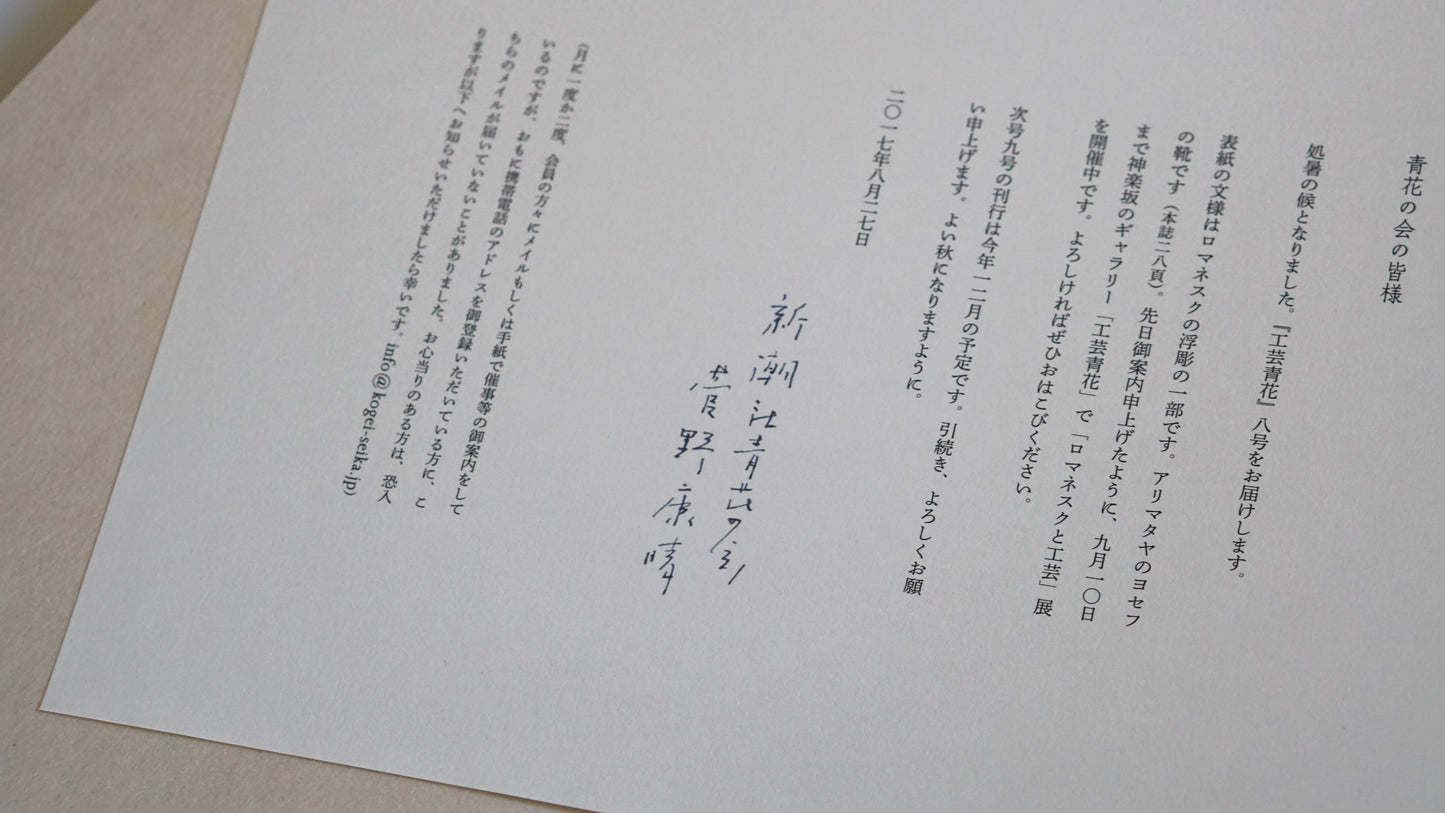 青花の会の皆様
処暑の候となりました。『工芸青花』八号をお届けします。
表紙の文様はロマネスクの浮彫の一部です。アリマタヤのヨセフ
の靴です（本誌二八頁）。先日御案内申上げたように、九月一〇日
まで神楽坂のギャラリー「工芸青花」で「ロマネスクと工芸」展
を開催中です。よろしければぜひおはこびください。
次号九号の刊行は今年一二月の予定です。引続き、よろしくお願
い申上げます。よい秋になりますように。
二〇一七年八月二七日
新潮社青花の会
菅野康晴
（月に一度か二度、会員の方々にメイルもしくは手紙で催事等の御案内をして
いるのですが、おもに携帯電話のアドレスを御登録いただいている方に、こ
ちらのメイルが届いていないことがありました。お心当りのある方は、恐入
りますが以下へお知らせいただけましたら幸いです。info@kogei-seika.jp）